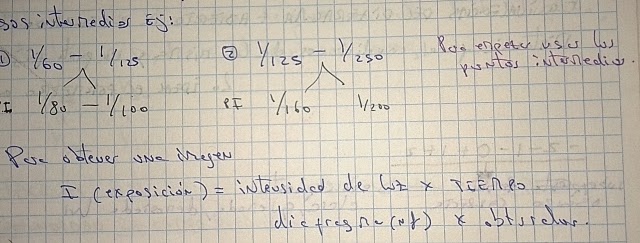 sos intermedios Ej:
1) 1/60 - 1/125 ② 1/125 - 1/250 usa los
puntos intermedios.
I 1/80 - 1/100 PI 1/160 1/200
Para obtener una imagen
I (exposición) = intensidad de luz x TIEMPO
diafragma (nf) x obturador.